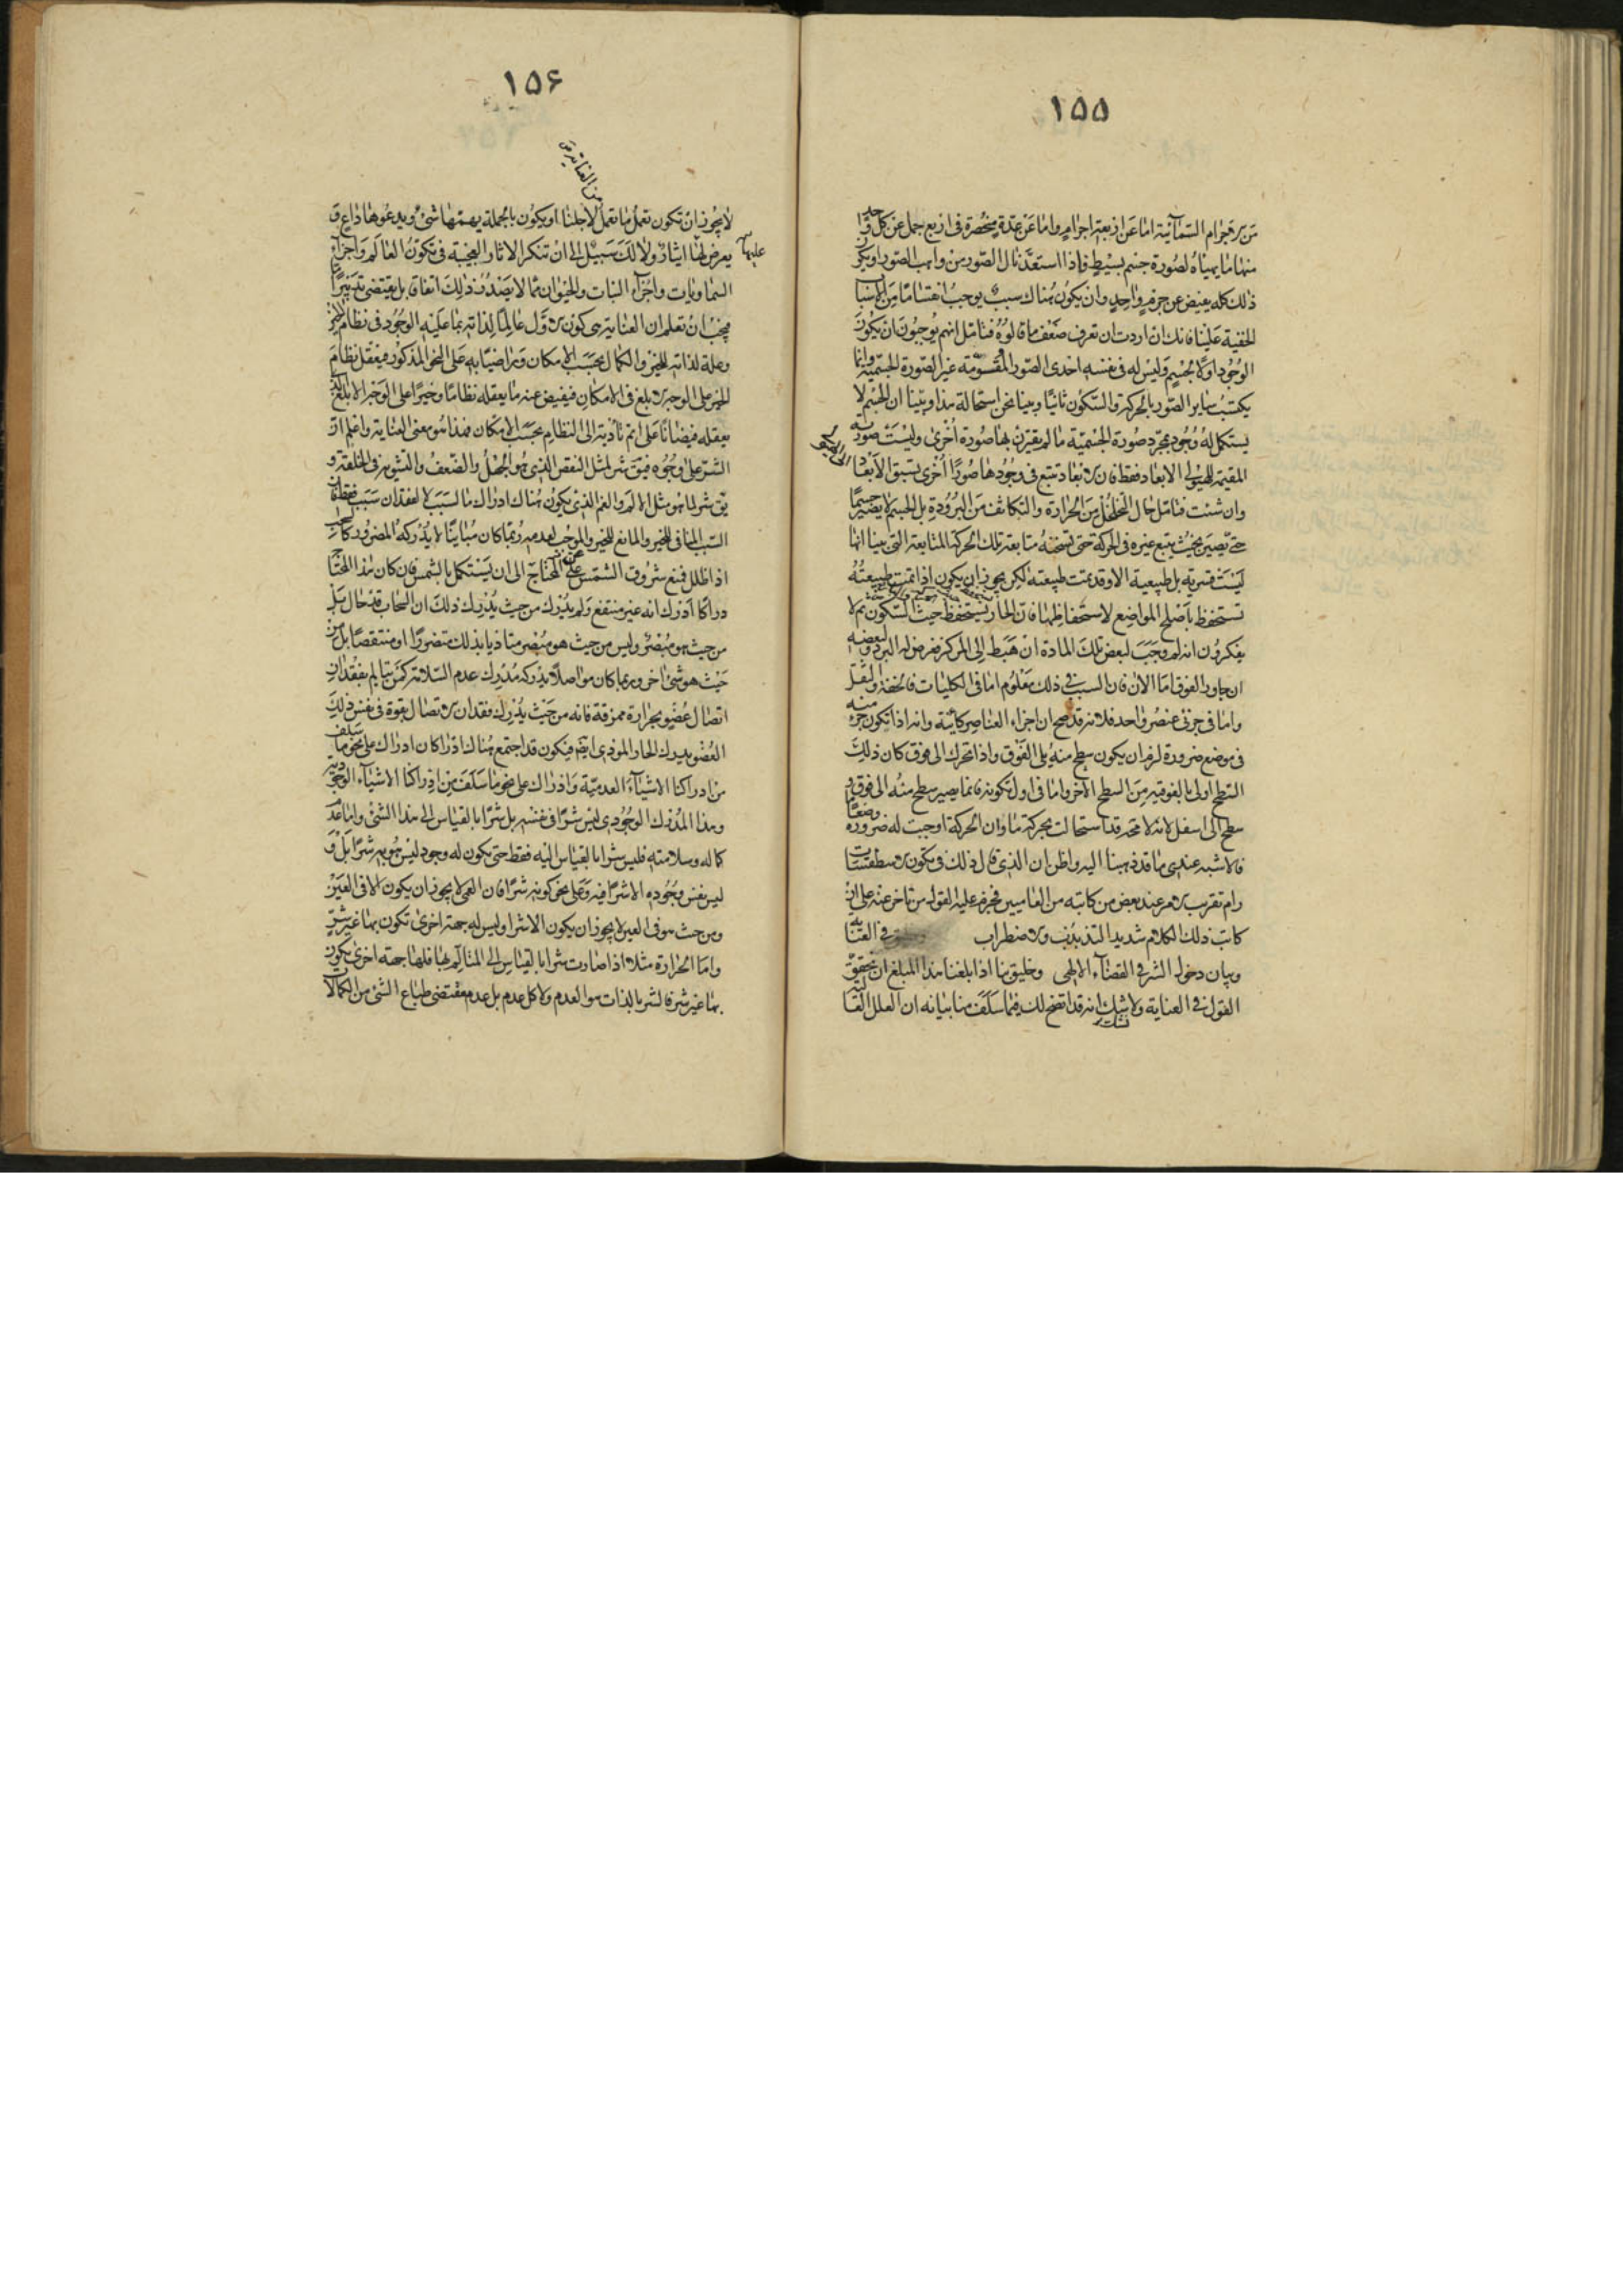 ١٥٥
من الاجرام السمائية اما عن اربعة اجرام واما عن عدة منحصرة في اربع جمل عن كل واحد
منها ما يهيأه لصورة جسم بسيط فاذا استعد نال الصور من واهب الصور او يكون
ذلك كله يفيض عن جرم واحد وان يكون هناك سبب يوجب انقساما من الاسباب
الخفية علينا فانك ان اردت ان تعرف ضعف ما قالوه فتامل انهم يوجبون ان يكون
الوجود اولا لجسم وليس له في نفسه احدى الصور المقسومة غير الصورة الجسمية وانما
يكتسب ساير الصور بالحركة والسكون ثانيا وبينا نحن استحالة هذا وبينا ان الجسم لا
يستكمل له وجود بمجرد صورة الجسمية ما لم يقترن بها صورة اخرى وليست صورته
المقيمة للهيولى الابعاد فقط فان الابعاد تتبع في وجودها صورا اخرى تسبق الابعاد
وان شئت فتامل حال التخلخل من الحرارة والتكاثف من البرودة بل الجسم لا يصير جسما
حتى يصير بحيث يتبع غيره في الحركة حتى تسخنه متابعة تلك الحركة المتابعة التي بينا انها
ليست قسرية بل طبيعية الا وقد تمت طبيعته لكن يجوز ان يكون اذا تمت طبيعته
تستحفظ باصلح المواضع لاستحفاظها فان الحار يستحفظ حيث السكون ثم لا
يفكرون انه لم وجب لبعض تلك المادة ان هبط الى المركز فعرض له البرد ولبعضه
ان جاور الفوق اما الان فان السبب في ذلك معلوم اما في الكليات فالخفة والثقل
واما في جزئى عنصر واحد فلانه قد صح ان اجزاء العناصر كائنة وانه اذا تكون جزء منه
في موضع ضرورة لزم ان يكون سطح منه يلي الفوق واذا تحرك الى فوق كان ذلك
السطح اولى بالفوقية من السطح الآخر واما في اول تكونه فانما يصير سطح منه الى فوق و
سطح الى اسفل لانه لا محة قد استحالت بحركة ما وان الحركة اوجبت له ضرورة وضعا ما
فالاشبه عندى ما قد ذهبنا اليه واظن ان الذي قال ذلك في تكون الاسطقسات
رام تقريب الامر عند بعض من كاتبه من العاميين فجزم عليه القول من تاخر عنه على ان
كاتب ذلك الكلام شديد التذبذب والاضطراب في العناية
وبيان دخول الشر في القضاء الالهي وخليق بنا اذا بلغنا هذا المبلغ ان نحقق
القول في العناية ولا شك انه قد اتضح لك فيما سلف منا بيانه ان العلل العالية
١٥۶
من العناية
لا يجوز ان تكون تعمل ما تعمل لاجلنا او يكون بالجملة يهمها شئ ويدعوها داع و
يعرض لها ايثار ولا لك سبيل الى ان تنكر الاثار العجيبة في تكون العالم واجزاء
عليها
السماويات واجزاء النبات والحيوان مما لا يصدر ذلك اتفاقا بل يقتضى تدبيرا ما
فيجب ان تعلم ان العناية هى كون الاول عالما لذاته بما عليه الوجود في نظام الخير
وعلة لذاته للخير والكمال بحسب الامكان وراضيا به على النحو المذكور فيعقل نظام
الخير على الوجه الابلغ في الامكان فيفيض عنه ما يعقله نظاما وخيرا على الوجه الابلغ الذى
يعقله فيضانا على اتم تادية الى النظام بحسب الامكان فهذا هو معنى العناية واعلم ان
الشر على وجوه فيق شر لمثل النقص الذى هو الجهل والضعف والتشويه في الخلقة و
يق شر لما هو مثل الالم والغم الذى يكون هناك ادراك ما لسبب لا لفقدان سبب فقط فان
السبب المنافى للخير والمانع للخير والموجب لعدمه ربما كان مباينا لا يدركه المضرور كالسحاب
اذا ظلل فمنع شروق الشمس عن المحتاج الى ان يستكمل بالشمس فان كان هذا المحتاج
دراكا ادرك انه غير منتفع ولم يدرك من حيث يدرك ذلك ان السحاب قد حال بل
من حيث هو مبصر وليس من حيث هو مبصر متاذيا بذلك متضررا او منتقصا بل من
حيث هو شئ اخر وربما كان مواصلا يدركه مدرك عدم السلامة كمن يتالم بفقدان
اتصال عضو بحرارة ممزقة فانه من حيث يدرك فقدان الاتصال بقوة في نفس ذلك
العضو يدرك الحار الموذى ايضا فيكون قد اجتمع هناك ادراكان ادراك على نحو ما سلف
من ادراكنا الاشياء العدمية وادراك على نحو ما سلف من ادراكنا الاشياء الوجودية
وهذا المدرك الوجودى ليس شرا في نفسه بل شرا بالقياس الى هذا الشئ واما عدم
كماله وسلامته فليس شرا بالقياس اليه فقط حتى يكون له وجود ليس هو به شرا بل و
ليس نفس وجوده الا شرا فيه وعلى نحو كونه شرا فان العمى لا يجوز ان يكون الا في العين
ومن حيث هو في العين لا يجوز ان يكون الا شرا وليس له جهة اخرى تكون بها غير شر
واما الحرارة مثلا اذا صارت شرا بالقياس الى المتالم بها فلها جهة اخرى يكون
بها غير شر فالشر بالذات هو العدم ولا كل عدم بل عدم مقتضى طباع الشئ من الكمالات